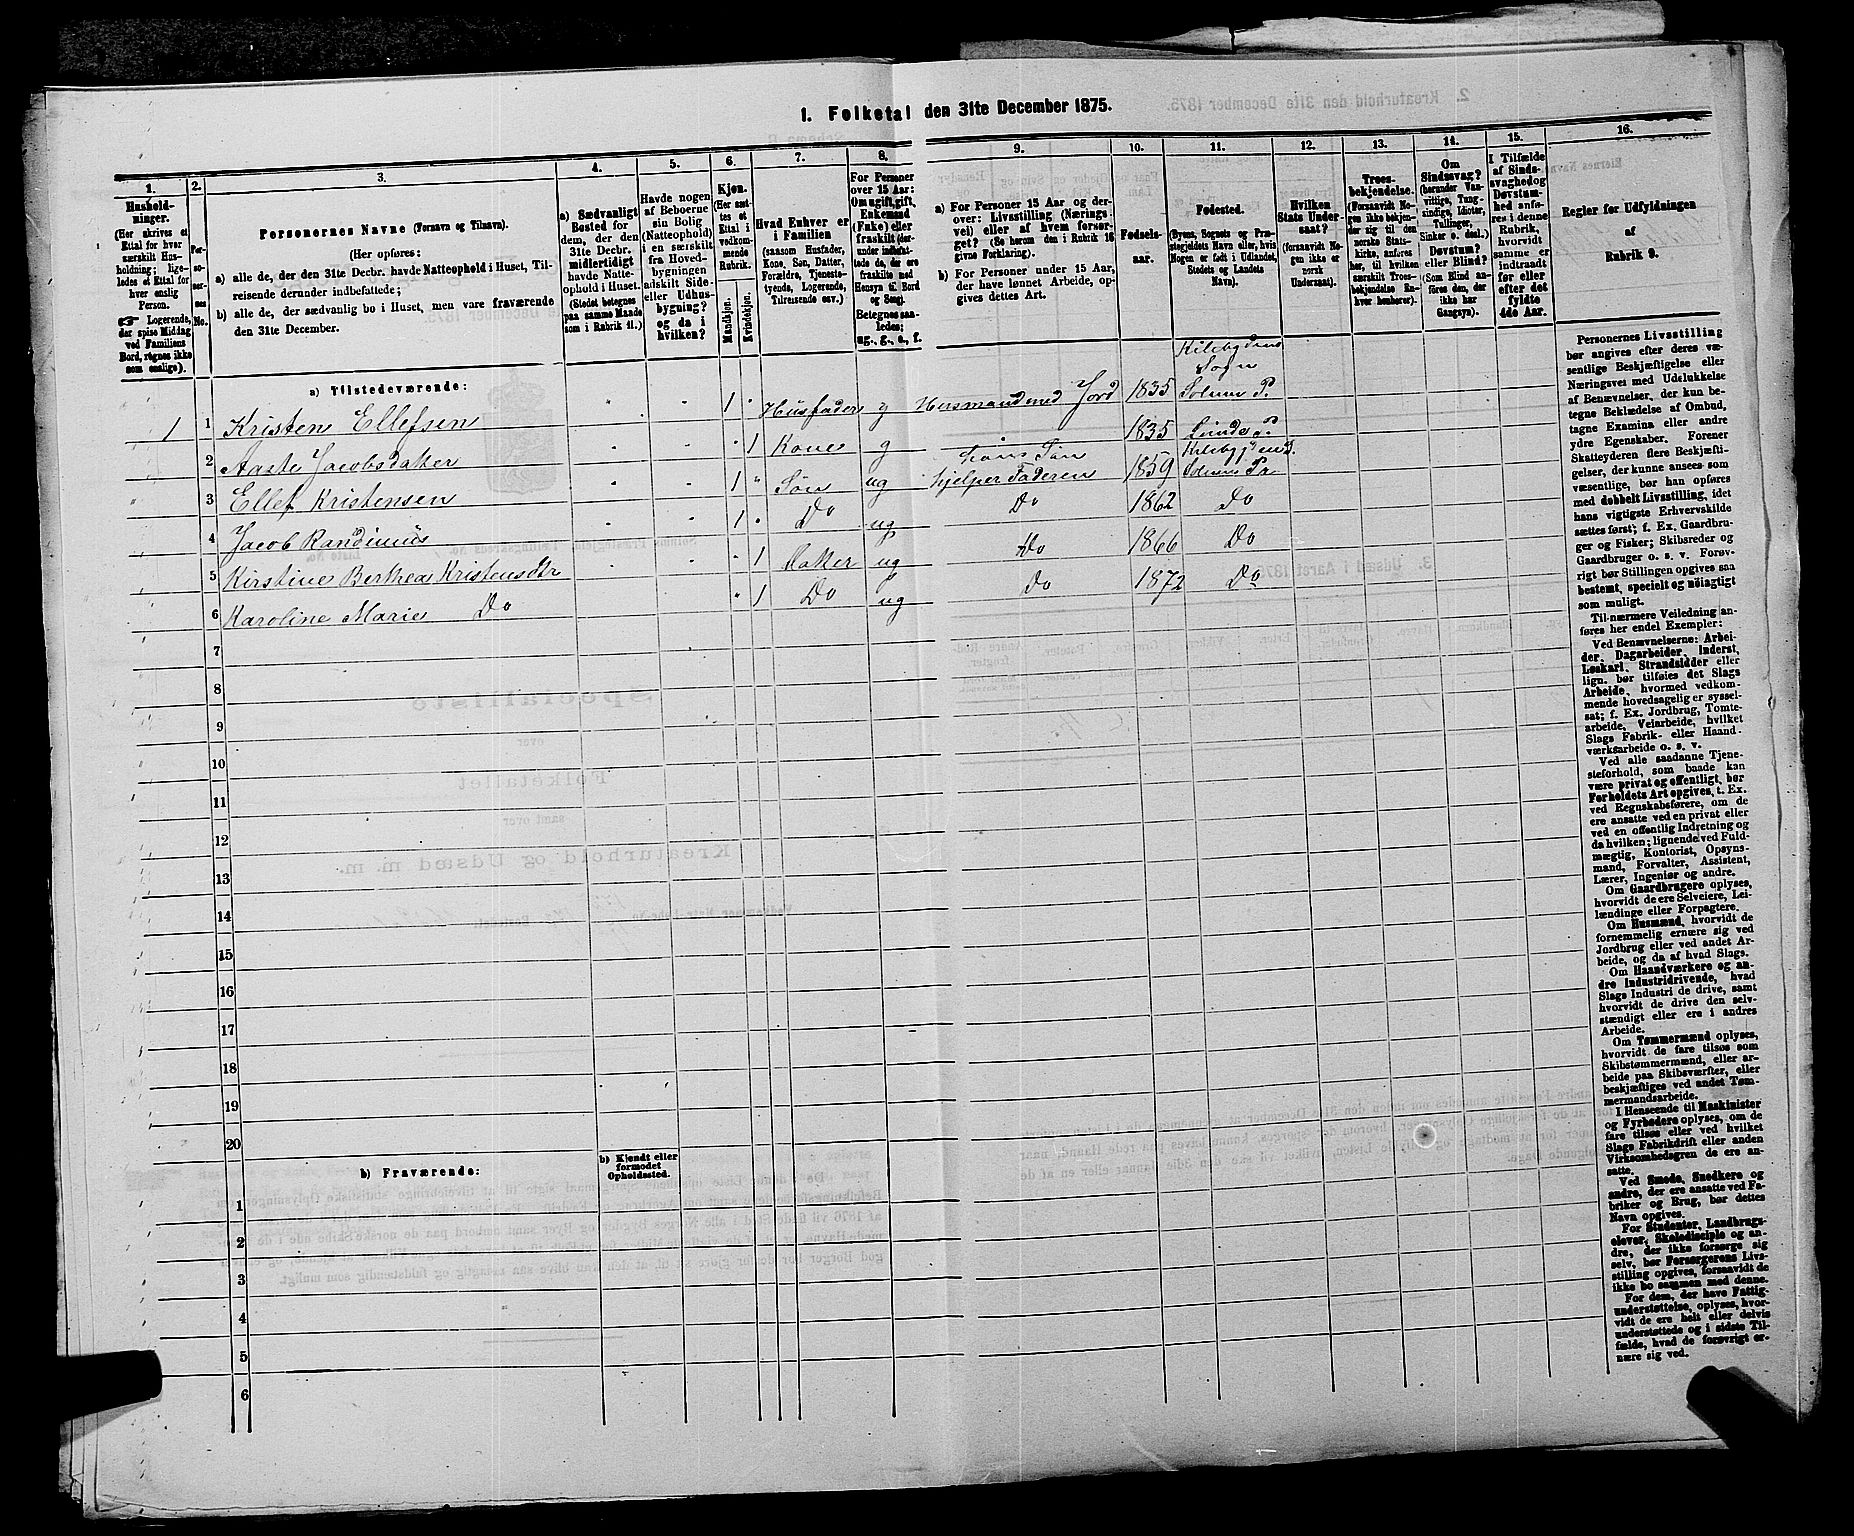 1. Folketal den 31te December 1875.
1.
2.
3.
4.
5.
6.
7.
8.
9.
10.
11.
12.
13.
14.
15.
16.
Husholdninger.
(Her skrives et
Ettal for hver
særskilt Husholdning;
ligeledes et Ettal for
hver enslig
Person.
☞ Logerende,
der spise Middag
ved Familiens
Bord, regnes ikke
som enslige).
Personernes No.
Personernes Navne (Fornavn og Tilnavn).
(Her opføres:
a) alle de, der den 31te Decbr. havde Natteophold i Huset, Tilreisende
derunder indbefattede;
b) alle de, der sædvanlig bo i Huset, men vare fraværende
den 31te December.
a) Sædvanligt
Bosted for
dem, der den
31te Decbr.
midlertidigt
havde Natteophold
i Huset.
(Stedet betegnes
paa samme Maade
som i Rubrik 11.)
Havde nogen
af Beboerne
sin Bolig
(Natteophold)
i en særskilt
fra Hovedbygningen
adskilt Side-
eller Udhusbygning?
og da i
hvilken?
Kjøn.
(Her sættes
et
Ettal i
vedkommende
Rubrik.
Mandkjøn.
Kvindekjøn.
Hvad Enhver er
i Familien
(saasom Husfader,
Kone, Søn, Datter,
Forældre, Tjenestetyende,
Logerende,
Tilreisende osv.)
For Personer
over 15 Aar:
Om ugift, gift,
Enkemand
(Enke) eller
fraskilt (derunder
indbefattede
de, der ere
fraskilte med
Hensyn til Bord
og Seng).
Betegnes saaledes:
ug., g., e., f.
a) For Personer 15 Aar og derover:
Livsstilling (Næringsvei)
eller af hvem forsørget?
(Se herom den i Rubrik 16
givne Forklaring).
b) For Personer under 15 Aar,
der have lønnet Arbeide, opgives
dettes Art.
Fødselsaar.
Fødested.
(Byens, Sognets og Præstegjeldets
Navn eller, hvis
Nogen er født i Udlandet,
Stedets og Landets
Navn).
Hvilken
Stats Undersaat?
(forsaavidt Nogen
ikke er
norsk
Undersaat).
Troesbekjendelse.
(Forsaavidt Nogen
ikke bekjender
sig til den
norske Statskirke,
anføres
her, til hvilken
særskilt Troesbekjendelse
Enhver
henhører).
Om
Sindssvag?
(herunder Vanvittige,
Tungsindige,
Idioter,
Tullinger,
Sinker o. desl.)
Døvstum?
eller Blind?
(Som Blind anføres
den, der
ikke har
Gangsyn).
I Tilfælde
af Sindssvaghed og
Døvstumhed
anføres
i denne
Rubrik,
hvorvidt
samme er
indtraadt
før eller
efter det
fyldte
4de Aar.
Regler for Udfyldningen
af
Rubrik 9.
a) Tilstedeværende:
1 1 Kristen Ellefsen " " 1 " Husfader g Husmand med Jord 1835 Kilebygdens Sogn Solum P.
2 Aaste Jacobsdatter " " " 1 Kone g 1835 Lunde P.
3 Ellef Kristensen " " 1 " Søn ug Søn hjelper Faderen 1859 Solum Pr
4 Jacob Randinius " " 1 " Do ug Do 1862 Do
5 Kirstine Berthea Kristensdtr " " " 1 Datter ug Do 1866 Do
6 Karoline Marie Do " 1 Do ug Do 1872 Do
7
8
9
10
11
12
13
14
15
16
17
18
19
20
b) Fraværende:
b) Kjendt eller
formodet
Opholdssted.
1
2
3
4
5
6
Personernes Livsstilling
bør angives efter deres væsentlige
Beskjæftigelse eller
Næringsvei med Udelukkelse
af Benævnelser, der kun betegne
Beklædelse af Ombud,
tagne Examina eller andre
ydre Egenskaber. Forener
Skatteyderen flere Beskjæftigelser,
der kunne ansees som
væsentlige, bør han opføres
med dobbelt Livsstilling, idet
hans vigtigste Erhvervskilde
sættes først; f. Ex. Gaardbruger
og Fisker; Skibsreder og
Gaardbruger o. s. v. Forøvrigt
bør Stillingen opgives saa
bestemt, specielt og nøiagtigt
som muligt.
Til nærmere Veiledning anføres
her endel Exempler:
Ved Benævnelserne: Arbeider,
Dagarbeider, Inderst,
Løskarl, Strandsidder eller
lign. bør tilføies det Slags
Arbeide, hvormed vedkommende
hovedsagelig er sysselsat;
f. Ex. Jordbrug, Tomtearbeide,
Veiarbeide, hvilket
Slags Fabrik- eller Haandværksarbeide
o. s. v.
Ved alle saadanne Tjenesteforhold,
som baade kan
være privat og offentligt, bør
Forholdets Art opgives, t. Ex.
ved Regnskabsførere, om de
ere ansatte ved en privat eller
ved en offentlig Indretning og
da hvilken; lignende ved Fuldmægtig,
Kontorist, Opsynsmand,
Forvalter, Assistent,
Lærer, Ingeniør og andre.
Om Gaardbrugere oplyses,
hvorvidt de ere Selveiere, Leilændinge
eller Forpagtere.
Om Husmænd, hvorvidt de
fornemmelig ernære sig ved
Jordbrug eller ved andet Arbeide,
og da af hvad Slags.
Om Haandværkere og andre
Industridrivende, hvad
Slags Industri de drive, samt
hvorvidt de drive den selvstændigt
eller ere i andres
Arbeide.
Om Tømmermænd oplyses,
hvorvidt de fare tilsøs som
Skibstømmermænd, eller arbeide
paa Skibsværfter, eller
beskjæftiges ved andet Tømmermandsarbeide.
I Henseende til Maskinister
og Fyrbødere oplyses, om de
fare tilsøs eller ved hvilket
Slags Fabrikdrift eller anden
Virksomhedsgren de ere ansatte.
Ved Smede, Snedkere og
andre, der ere ansatte ved Fabriker
og Brug, bør dettes
Navn opgives.
For Studenter, Landbrugselever,
Skoledisciple og andre,
der ikke forsørge sig
selv, bør Forsørgerens Livsstilling
opgives, forsaavidt de
ikke bo sammen med denne.
For dem, der have Fattigunderstøttelse,
oplyses, hvorvidt
de ere helt eller delvis
understøttede og i sidste Tilfælde,
hvad de forøvrigt ernære
sig ved.